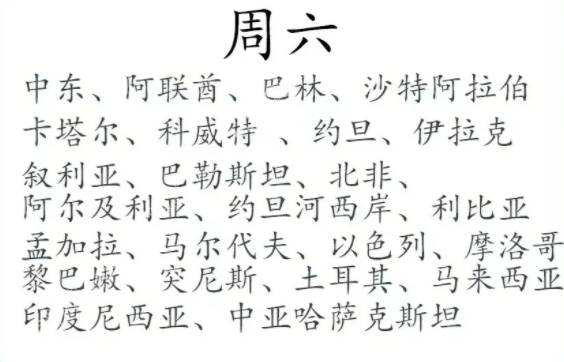 周六
中东、阿联酋、巴林、沙特阿拉伯
卡塔尔、科威特 、约旦、伊拉克
叙利亚、巴勒斯坦、北非、
阿尔及利亚、约旦河西岸、利比亚
孟加拉、马尔代夫、以色列、摩洛哥
黎巴嫩、突尼斯、土耳其、马来西亚
印度尼西亚、中亚哈萨克斯坦